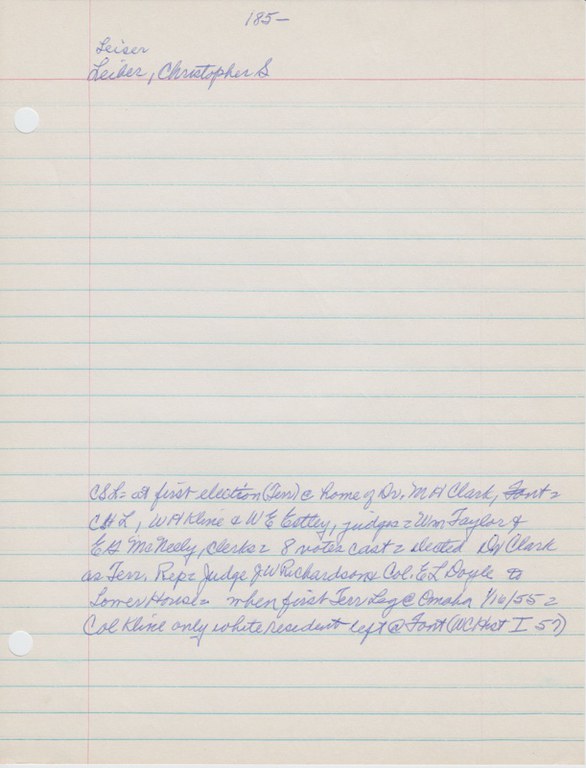 185-
Leiser
Leiber, Christopher S
CSL= at first election (Terr) @ home of Dr. M H Clark, Font=
CHL, W H Kline & W E Estley, judges= Wm Taylor &
E G McNeely, clerks= 8 votes cast= elected Dr Clark
as Terr. Rep= Judge J W Richardson & Col. E L Doyle to
Lower House= when first Terr Leg @ Omaha 1/16/55=
Col Kline only white resident left @ Font (WC Hist I 57)